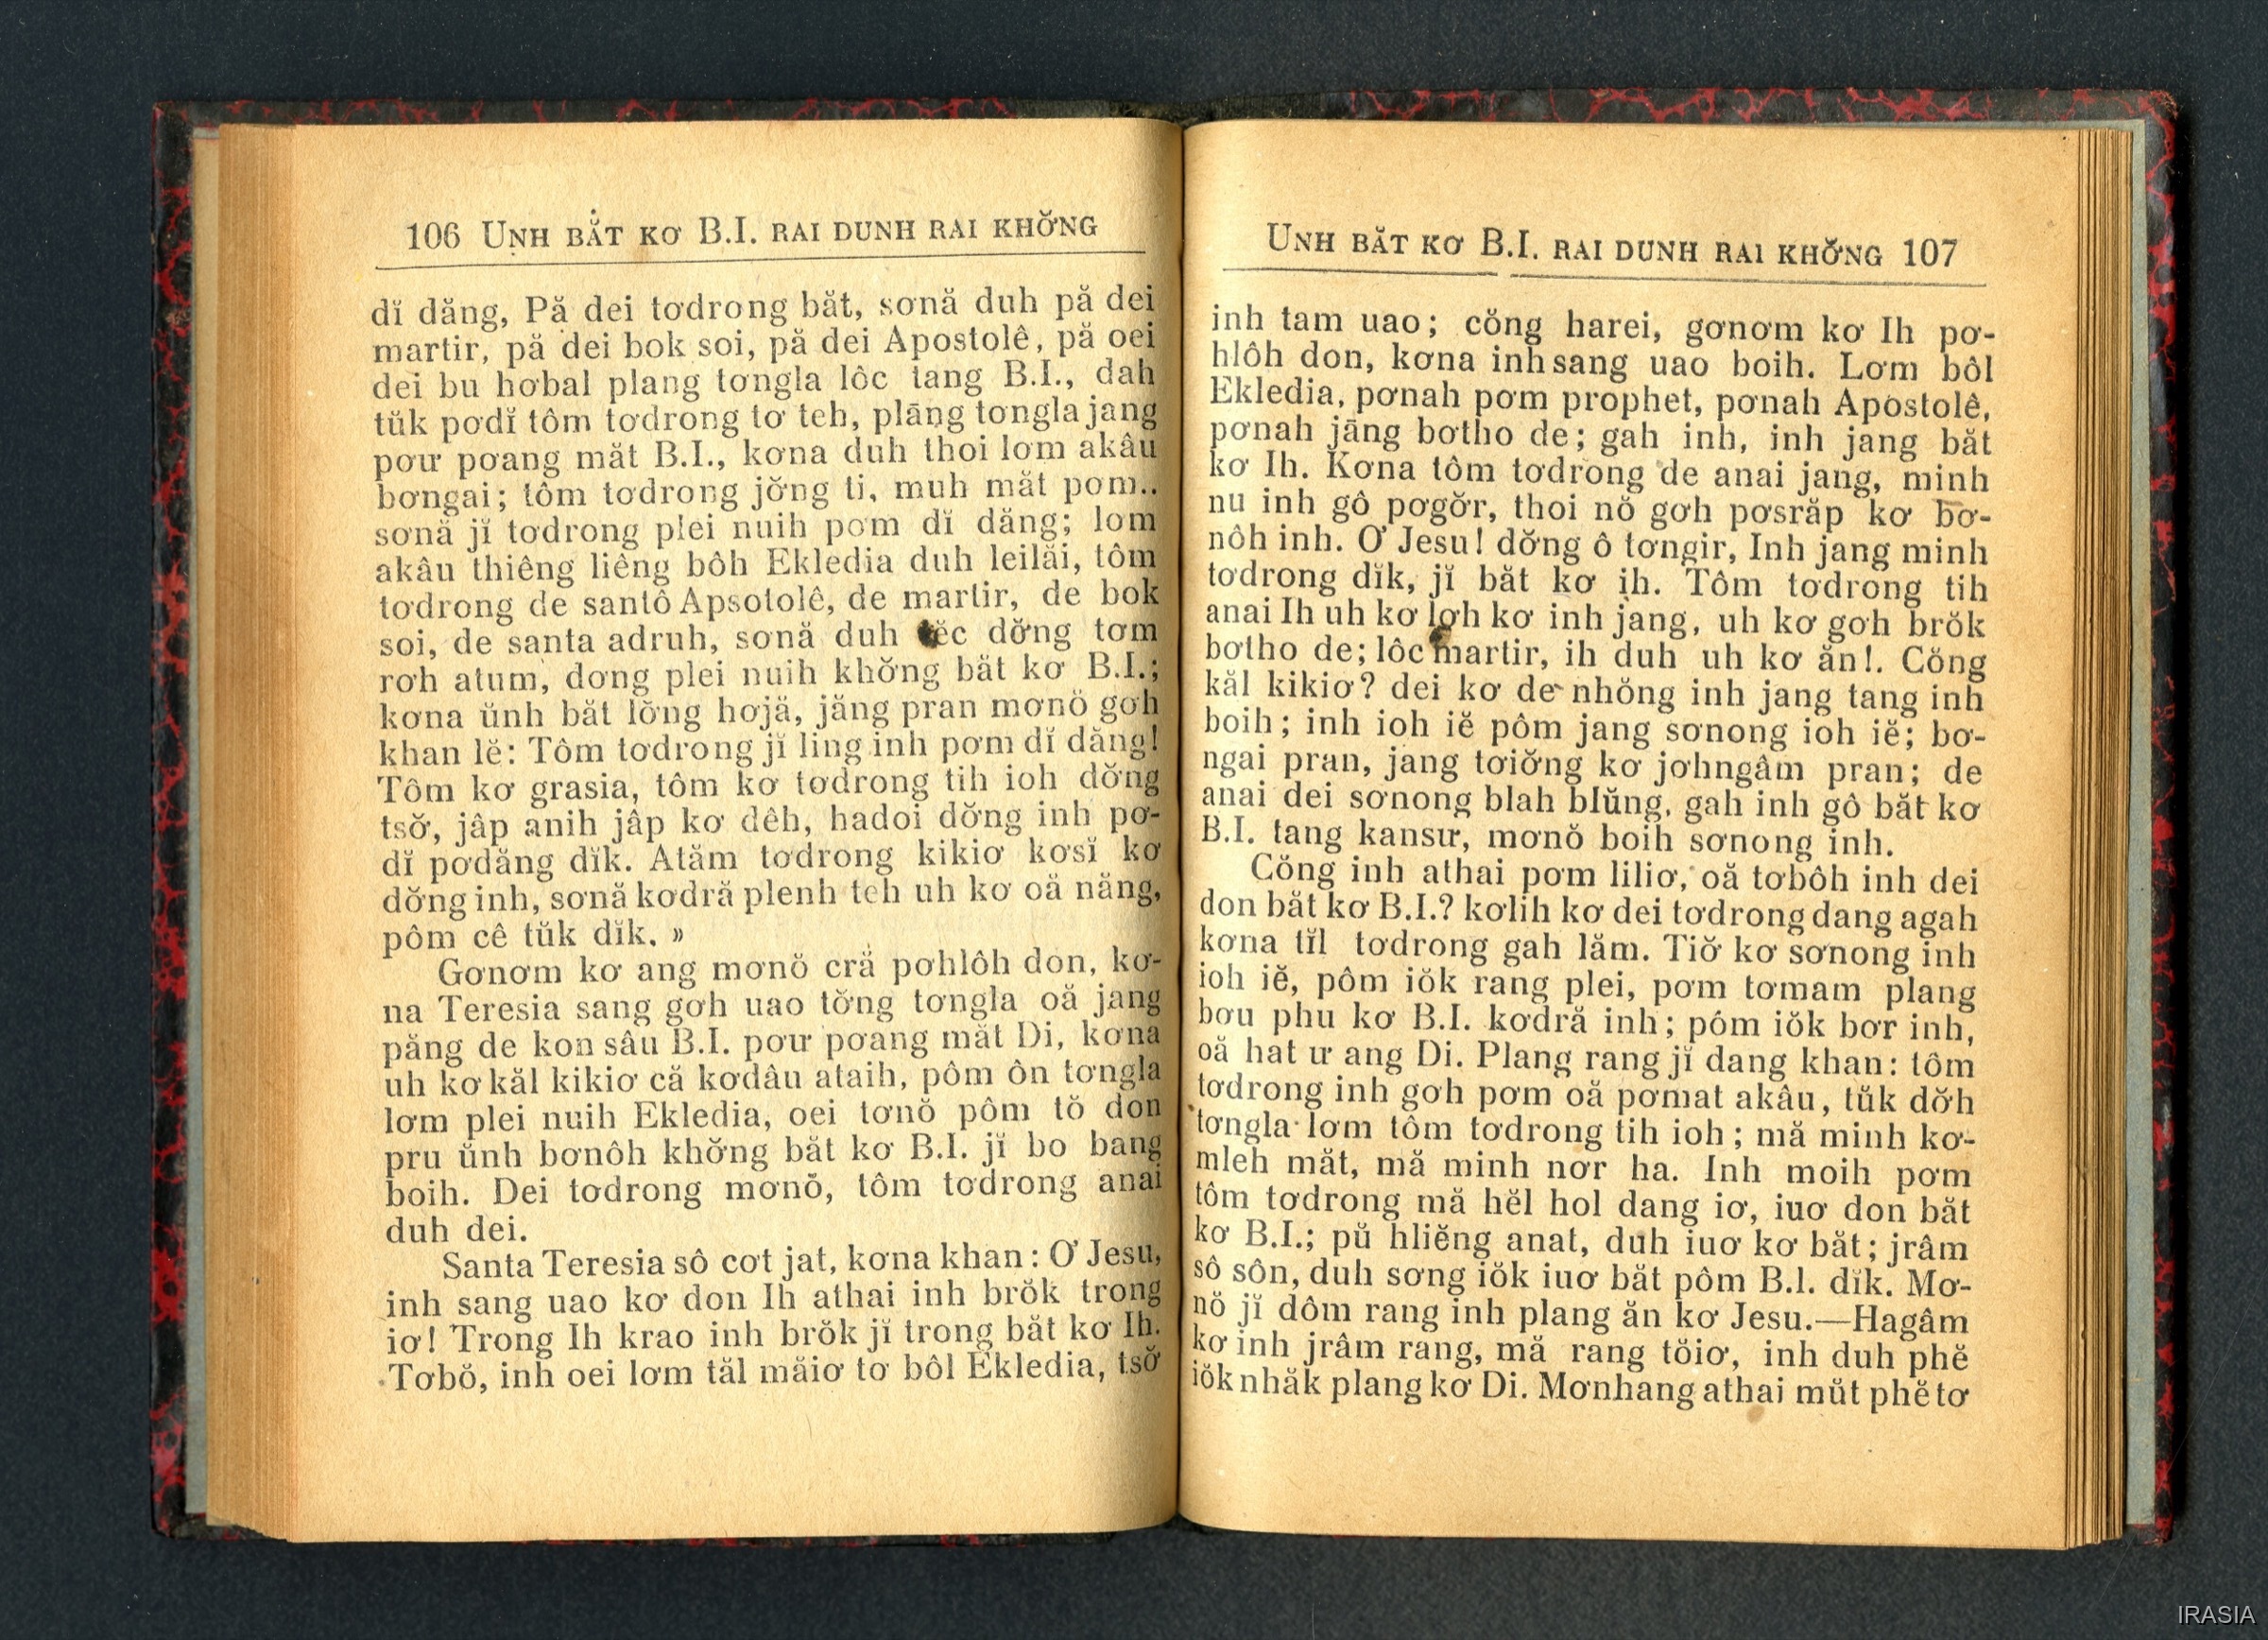 106 UNH BĂT KƠ B.I. RAI DUNH RAI KHƠ̆NG
dĭ dăng, Pă dei tơdrong băt, sơnă duh pă dei
martir, pă dei bok soi, pă dei Apostolê, pă oei
dei bu hơbal plang tơngla lôc tang B.I., dah
tŭk pơdĭ tôm tơdrong tơ teh, plāng tơngla jang
pơư pơang măt B.I., kơna duh thoi lơm akâu
bơngai; tôm tơdrong jơ̆ng ti, muh măt pơm..
sơnă jĭ tơdrong plei nuih pơm dĭ dăng; lơm
akâu thiêng liêng bôh Ekledia duh leilăi, tôm
tơdrong de santô Apsotolê, de martir, de bok
soi, de santa adruh, sơnă duh tĕc dơ̆ng tơm
rơh atum, dơng plei nuih khơ̆ng băt kơ B.I.;
kơna ŭnh băt lơ̆ng hơjă, jăng pran mơnŏ gơh
khan lĕ: Tôm tơdrong jĭ ling inh pơm dĭ dăng!
Tôm kơ grasia, tôm kơ tơdrong tih ioh dơ̆ng
tsơ̆, jâp anih jâp kơ dêh, hadoi dơ̆ng inh pơ-
dĭ pơdăng dĭk. Atăm tơdrong kikiơ kơsĭ kơ
dơ̆ng inh, sơnă kơdră plenh teh uh kơ oă năng,
pôm cê tŭk dĭk. »
Gơnơm kơ ang mơnŏ cră pơhlôh don, kơ-
na Teresia sang gơh uao tơ̆ng tơngla oă jang
păng de kon sâu B.I. pơư pơang măt Di, kơna
uh kơ kăl kikiơ că kơdâu ataih, pôm ôn tơngla
lơm plei nuih Ekledia, oei tơnŏ pôm tŏ don
pru ŭnh bơnôh khơ̆ng băt kơ B.I. jĭ bo bang
boih. Dei tơdrong mơnŏ, tôm tơdrong anai
duh dei.
Santa Teresia sô cơt jat, kơna khan : Ơ Jesu,
inh sang uao kơ don Ih athai inh brŏk trong
iơ! Trong Ih krao inh brŏk jĭ trong băt kơ Ih.
Tơbŏ, inh oei lơm tăl măiơ tơ bôl Ekledia, tsơ̆
UNH BĂT KƠ B.I. RAI DUNH RAI KHƠ̆NG 107
inh tam uao; cŏng harei, gơnơm kơ Ih pơ-
hlôh don, kơna inh sang uao boih. Lơm bôl
Ekledia, pơnah pơm prophet, pơnah Apostolê,
pơnah jāng bơtho de; gah inh, inh jang băt
kơ Ih. Kơna tôm tơdrong de anai jang, minh
nu inh gô pơgơ̆r, thoi nŏ gơh pơsrăp kơ bơ-
nôh inh. Ơ Jesu! dơ̆ng ô tơngir, Inh jang minh
tơdrong dĭk, jĭ băt kơ ih. Tôm tơdrong tih
anai Ih uh kơ lơh kơ inh jang, uh kơ gơh brŏk
bơtho de; lôc martir, ih duh uh kơ ăn!. Cŏng
kăl kikiơ? dei kơ de nhŏng inh jang tang inh
boih; inh ioh iĕ pôm jang sơnong ioh iĕ; bơ-
ngai pran, jang tơiơ̆ng kơ jơhngâm pran; de
anai dei sơnong blah blŭng, gah inh gô băt kơ
B.I. tang kansư, mơnŏ boih sơnong inh.
Cŏng inh athai pơm liliơ, oă tơbôh inh dei
don băt kơ B.I.? kơlih kơ dei tơdrong dang agah
kơna tĭl tơdrong gah lăm. Tiơ̆ kơ sơnong inh
ioh iĕ, pôm iŏk rang plei, pơm tơmam plang
bơu phu kơ B.I. kơdră inh; pôm iŏk bơr inh,
oă hat ư ang Di. Plang rang jĭ dang khan: tôm
tơdrong inh gơh pơm oă pơmat akâu, tŭk dơ̆h
tơngla lơm tôm tơdrong tih ioh; mă minh kơ-
mleh măt, mă minh nơr ha. Inh moih pơm
tôm tơdrong mă hĕl hol dang iơ, iuơ don băt
kơ B.I.; pŭ hliĕng anat, duh iuơ kơ băt; jrâm
sô sôn, duh sơng iŏk iuơ băt pôm B.I. dĭk. Mơ-
nŏ jĭ dôm rang inh plang ăn kơ Jesu.—Hagâm
kơ inh jrâm rang, mă rang tŏiơ, inh duh phĕ
iŏk nhăk plang kơ Di. Mơnhang athai mŭt phĕ tơ
IRASIA